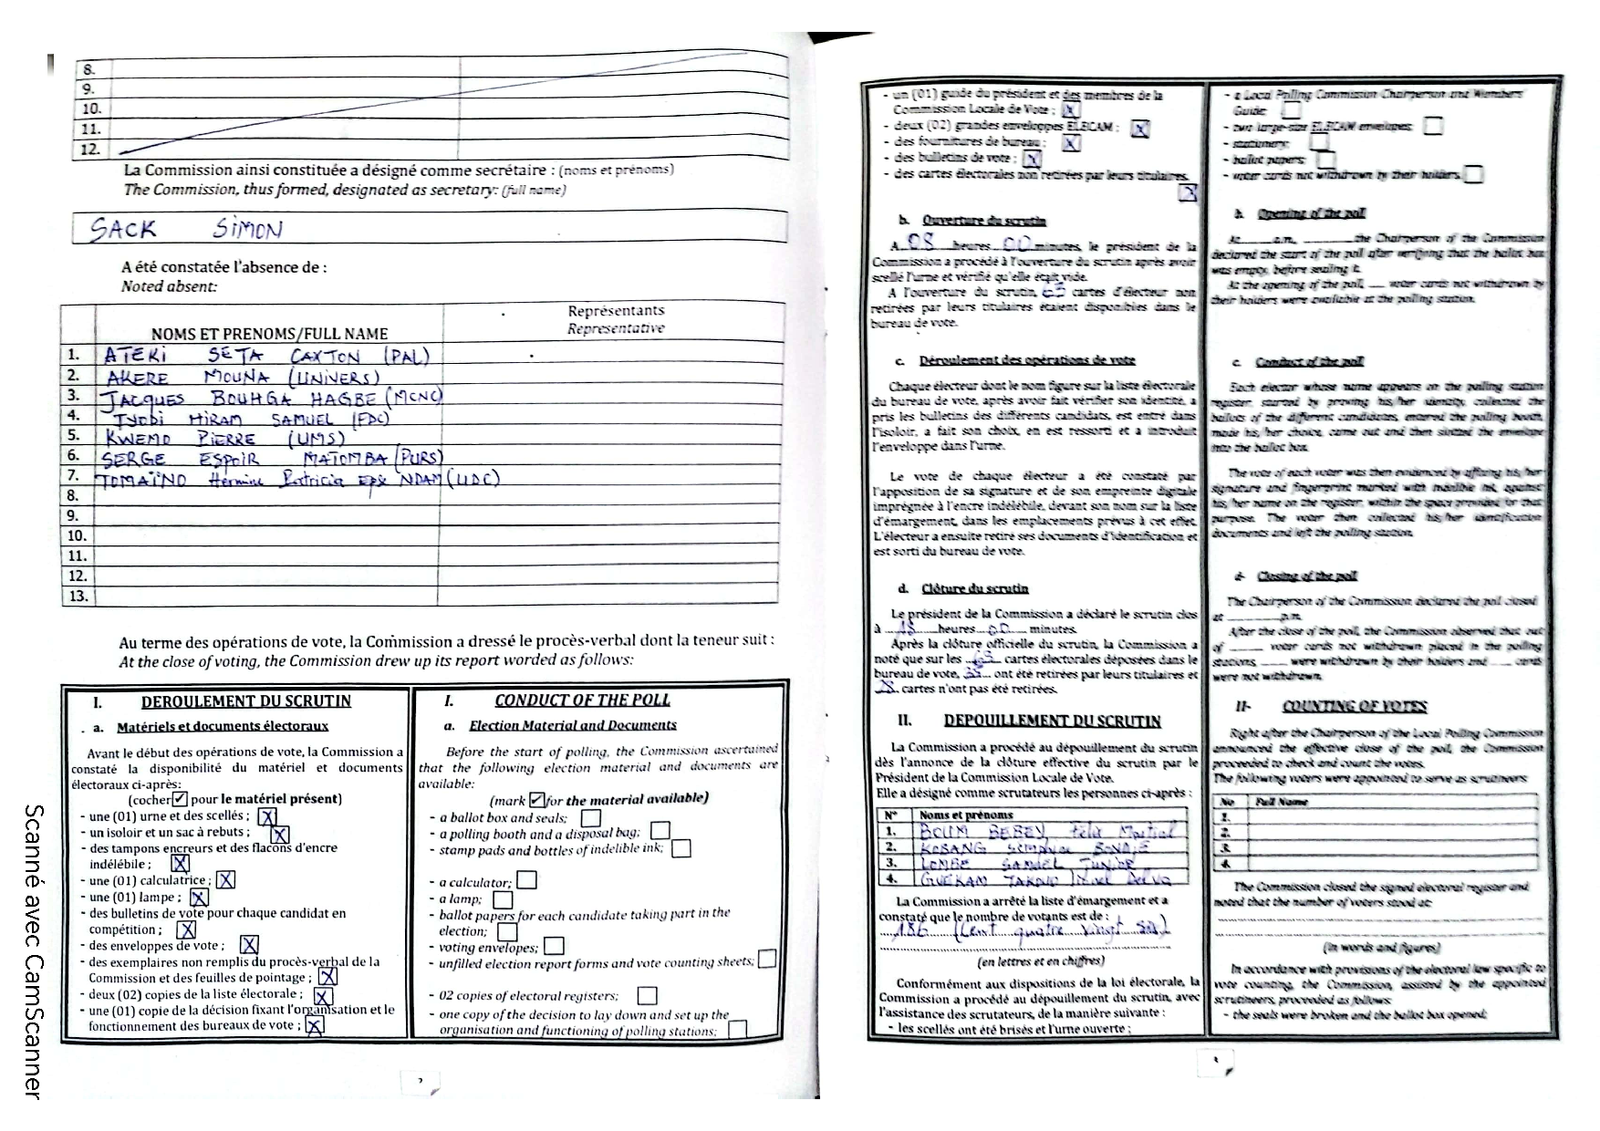 8.
9.
10.
11.
12.
La Commission ainsi constituée a désigné comme secrétaire : (noms et prénoms)
The Commission, thus formed, designated as secretary: (full name)
SACK SIMON
A été constatée l'absence de :
Noted absent:
NOMS ET PRENOMS/FULL NAME
Représentants
Representative
1. ATEKI SETA CAXTON (PAL)
2. AKERE MOUNA (UNIVERS)
3. JACQUES BOUHGA HAGBE (MCNC)
4. HIRAM SAMUEL (FDC)
5. KWEMO PIERRE (UMS)
6. SERGE ESPOIR MATOMBA (PURS)
7. TOMAÏNO Hermine Patricia epse NDAM (UDC)
8.
9.
10.
11.
12.
13.
Au terme des opérations de vote, la Commission a dressé le procès-verbal dont la teneur suit :
At the close of voting, the Commission drew up its report worded as follows:
I. DEROULEMENT DU SCRUTIN
a. Matériels et documents électoraux
Avant le début des opérations de vote, la Commission a
constaté la disponibilité du matériel et documents
électoraux ci-après:
(cocher ✓ pour le matériel présent)
- une (01) urne et des scellés ; X
- un isoloir et un sac à rebuts ; X
- des tampons encreurs et des flacons d'encre
indélébile ; X
- une (01) calculatrice ; X
- une (01) lampe ; X
- des bulletins de vote pour chaque candidat en
compétition ; X
- des enveloppes de vote ; X
- des exemplaires non remplis du procès-verbal de la
Commission et des feuilles de pointage ; X
- deux (02) copies de la liste électorale ; X
- une (01) copie de la décision fixant l'organisation et le
fonctionnement des bureaux de vote ; X
I. CONDUCT OF THE POLL
a. Election Material and Documents
Before the start of polling, the Commission ascertained
that the following election material and documents are
available:
(mark ✓ for the material available)
- a ballot box and seals;
- a polling booth and a disposal bag;
- stamp pads and bottles of indelible ink;
- a calculator;
- a lamp;
- ballot papers for each candidate taking part in the
election;
- voting envelopes;
- unfilled election report forms and vote counting sheets;
- 02 copies of electoral registers;
- one copy of the decision to lay down and set up the
organisation and functioning of polling stations;
2
- un (01) guide du président et des membres de la
Commission Locale de Vote ; X
- deux (02) grandes enveloppes ELECAM ; X
- des fournitures de bureau ; X
- des bulletins de vote ; X
- des cartes électorales non retirées par leurs titulaires.
X
b. Ouverture du scrutin
A 08 heures 00 minutes, le président de la
Commission a procédé à l'ouverture du scrutin après avoir
scellé l'urne et vérifié qu'elle était vide.
A l'ouverture du scrutin, cartes d'électeur non
retirées par leurs titulaires étaient disponibles dans le
bureau de vote.
c. Déroulement des opérations de vote
Chaque électeur dont le nom figure sur la liste électorale
du bureau de vote, après avoir fait vérifier son identité, a
pris les bulletins des différents candidats, est entré dans
l'isoloir, a fait son choix, en est ressorti et a introduit
l'enveloppe dans l'urne.
Le vote de chaque électeur a été constaté par
l'apposition de sa signature et de son empreinte digitale
imprégnée à l'encre indélébile, devant son nom sur la liste
d'émargement, dans les emplacements prévus à cet effet.
L'électeur a ensuite retiré ses documents d'identification et
est sorti du bureau de vote.
d. Clôture du scrutin
Le président de la Commission a déclaré le scrutin clos
à 18 heures 00 minutes.
Après la clôture officielle du scrutin, la Commission a
noté que sur les cartes électorales déposées dans le
bureau de vote, ont été retirées par leurs titulaires et
cartes n'ont pas été retirées.
II. DEPOUILLEMENT DU SCRUTIN
La Commission a procédé au dépouillement du scrutin
dès l'annonce de la clôture effective du scrutin par le
Président de la Commission Locale de Vote.
Elle a désigné comme scrutateurs les personnes ci-après :
N° Noms et prénoms
1. BOUM BEBEY Félix Martial
2. KOBANG BONDJE
3. LOMBE SAMUEL JUNIOR
4. GUEKAM
La Commission a arrêté la liste d'émargement et a
constaté que le nombre de votants est de :
186 (Cent quatre vingt six)
(en lettres et en chiffres)
Conformément aux dispositions de la loi électorale, la
Commission a procédé au dépouillement du scrutin, avec
l'assistance des scrutateurs, de la manière suivante :
- les scellés ont été brisés et l'urne ouverte ;
- a Local Polling Commission Chairperson and Members'
Guide;
- two large-size ELECAM envelopes;
- stationery;
- ballot papers;
- voter cards not withdrawn by their holders.
b. Opening of the poll
At a.m, the Chairperson of the Commission
declared the start of the poll after verifying that the ballot box
was empty, before sealing it.
At the opening of the poll, voter cards not withdrawn by
their holders were available at the polling station.
c. Conduct of the poll
Each elector whose name appears on the polling station
register, started by proving his/her identity, collected the
ballots of the different candidates, entered the polling booth,
made his/her choice, came out and then slotted the envelope
into the ballot box.
The vote of each voter was then evidenced by affixing his/her
signature and fingerprint marked with indelible ink, against
his/her name on the register, within the space provided for that
purpose. The voter then collected his/her identification
documents and left the polling station.
d- Closing of the poll
The Chairperson of the Commission declared the poll closed
at p.m.
After the close of the poll, the Commission observed that out
of voter cards not withdrawn placed in the polling
stations, were withdrawn by their holders and cards
were not withdrawn.
II- COUNTING OF VOTES
Right after the Chairperson of the Local Polling Commission
announced the effective close of the poll, the Commission
proceeded to check and count the votes.
The following voters were appointed to serve as scrutineers:
No Full Name
1.
2.
3.
4.
The Commission closed the signed electoral register and
noted that the number of voters stood at:
(In words and figures)
In accordance with provisions of the electoral law specific to
vote counting, the Commission, assisted by the appointed
scrutineers, proceeded as follows:
- the seals were broken and the ballot box opened;
Scanné avec CamScanner